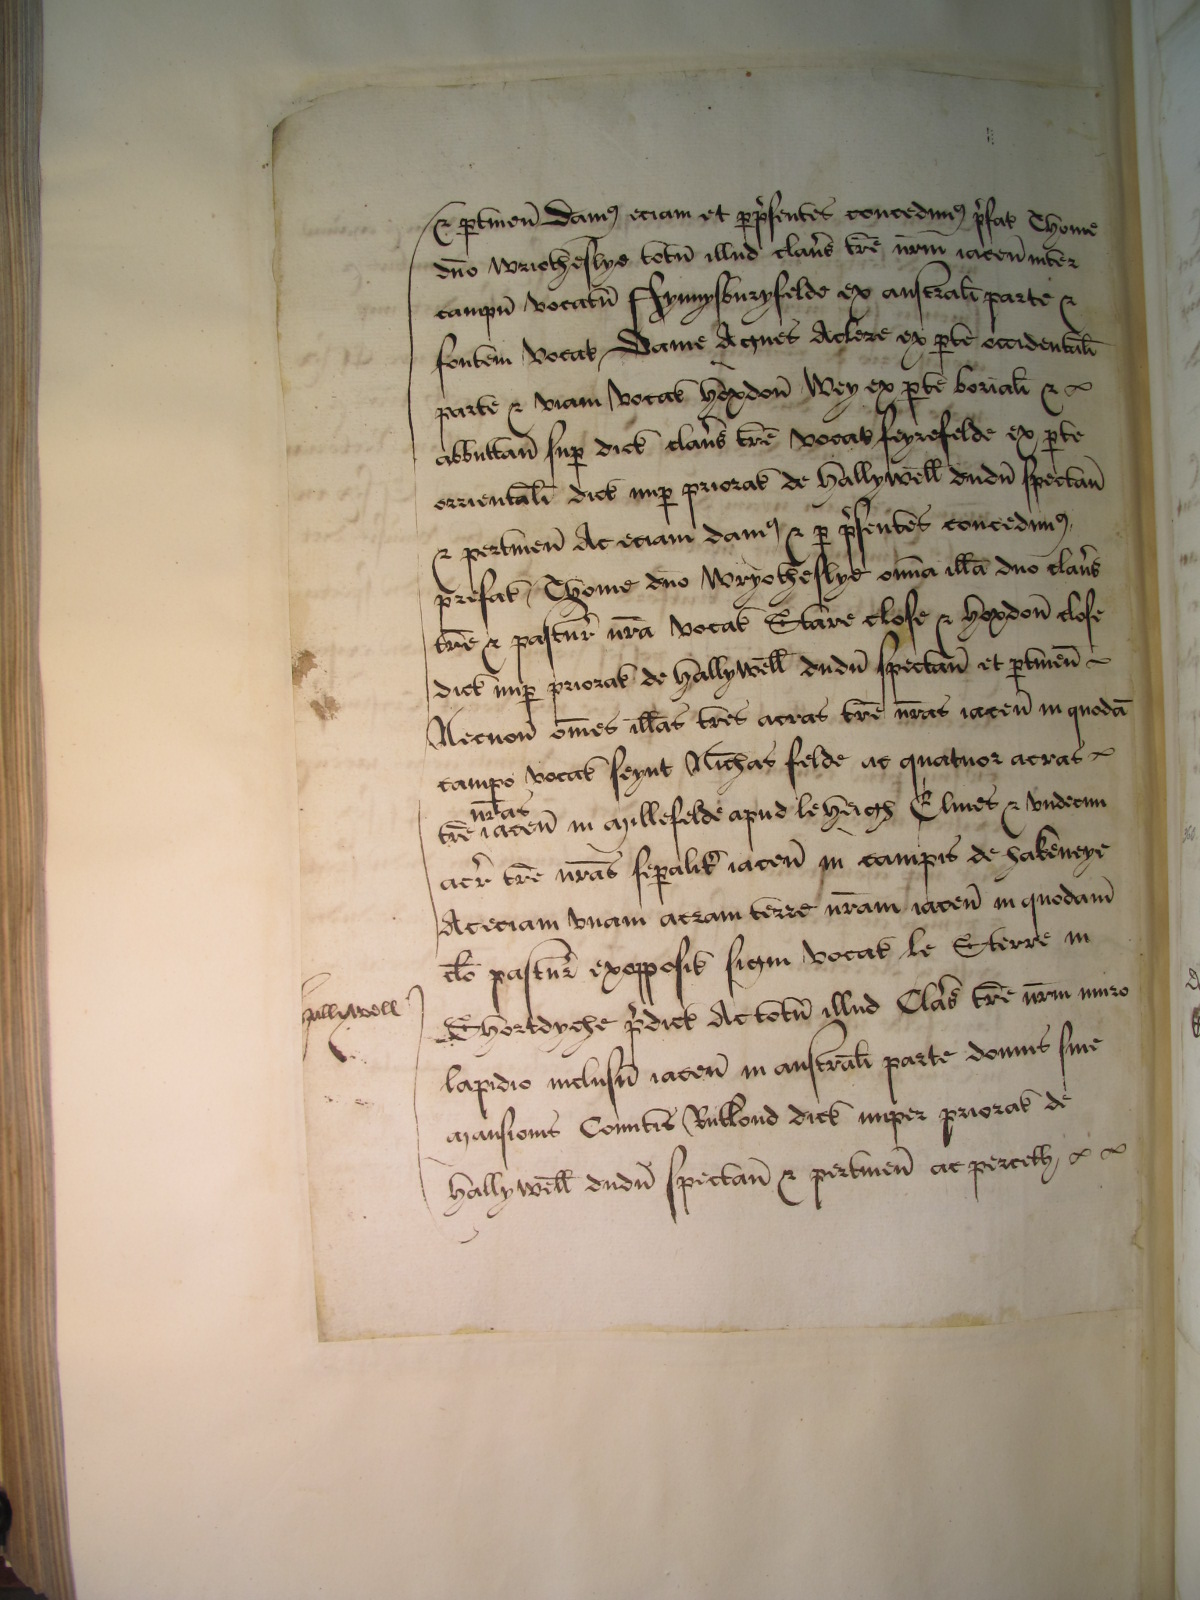 & ptinen̄ Damus eciam et p pr̄sentes concedimus pr̄fat Thome
dn̄o Wriotheslye totū illud claus̄ tre nr̄m iacen̄ inter
campū vocatū ffynnysburyfelde ex australi parte &
fontem vocat Dame Agnes Aclere ex pte occidentali
parte & viam vocat hoxdon̄ Wey ex pte boriali &
abbuttan̄ sup dict claus̄ tre vocat feyrefelde ex pte
orrientali dict nup priorat de hallywell dudū spectan̄
& pertinen̄ Ac eciam damus & p pr̄sentes concedimus
prefat Thome dn̄o Wryotheslye om̄ia ill̄a duo claus̄
tre & pastur̄ nr̄a vocat Stare close & hoxdon̄ close
dict nup priorat de hallywell dudū spectan̄ et ptinen̄
Necnon om̄es ill̄as tres acras tre nr̄as iacen̄ in quodā
campo vocat seynt Nich̄as felde ac quatuor acras
tre nr̄as iacen̄ in Millefelde apud le heigh Elmes & vndecim
acr̄ tre nr̄as sepalit iacen̄ in campis de hakeneye
Ac eciam vnam acram terre nr̄am iacen̄ in quodam
clo pastur̄ ex opposit signi vocat le Sterre in
hallywell
Shordyche pr̄dict Ac totū illud Claus̄ tre nr̄m muro
lapidio inclusū iacen̄ in australi parte domus sive
mansionis Comitis Rutlond dict nuper priorat de
hallywell dudū spectan̄ & pertinen̄ ac percell